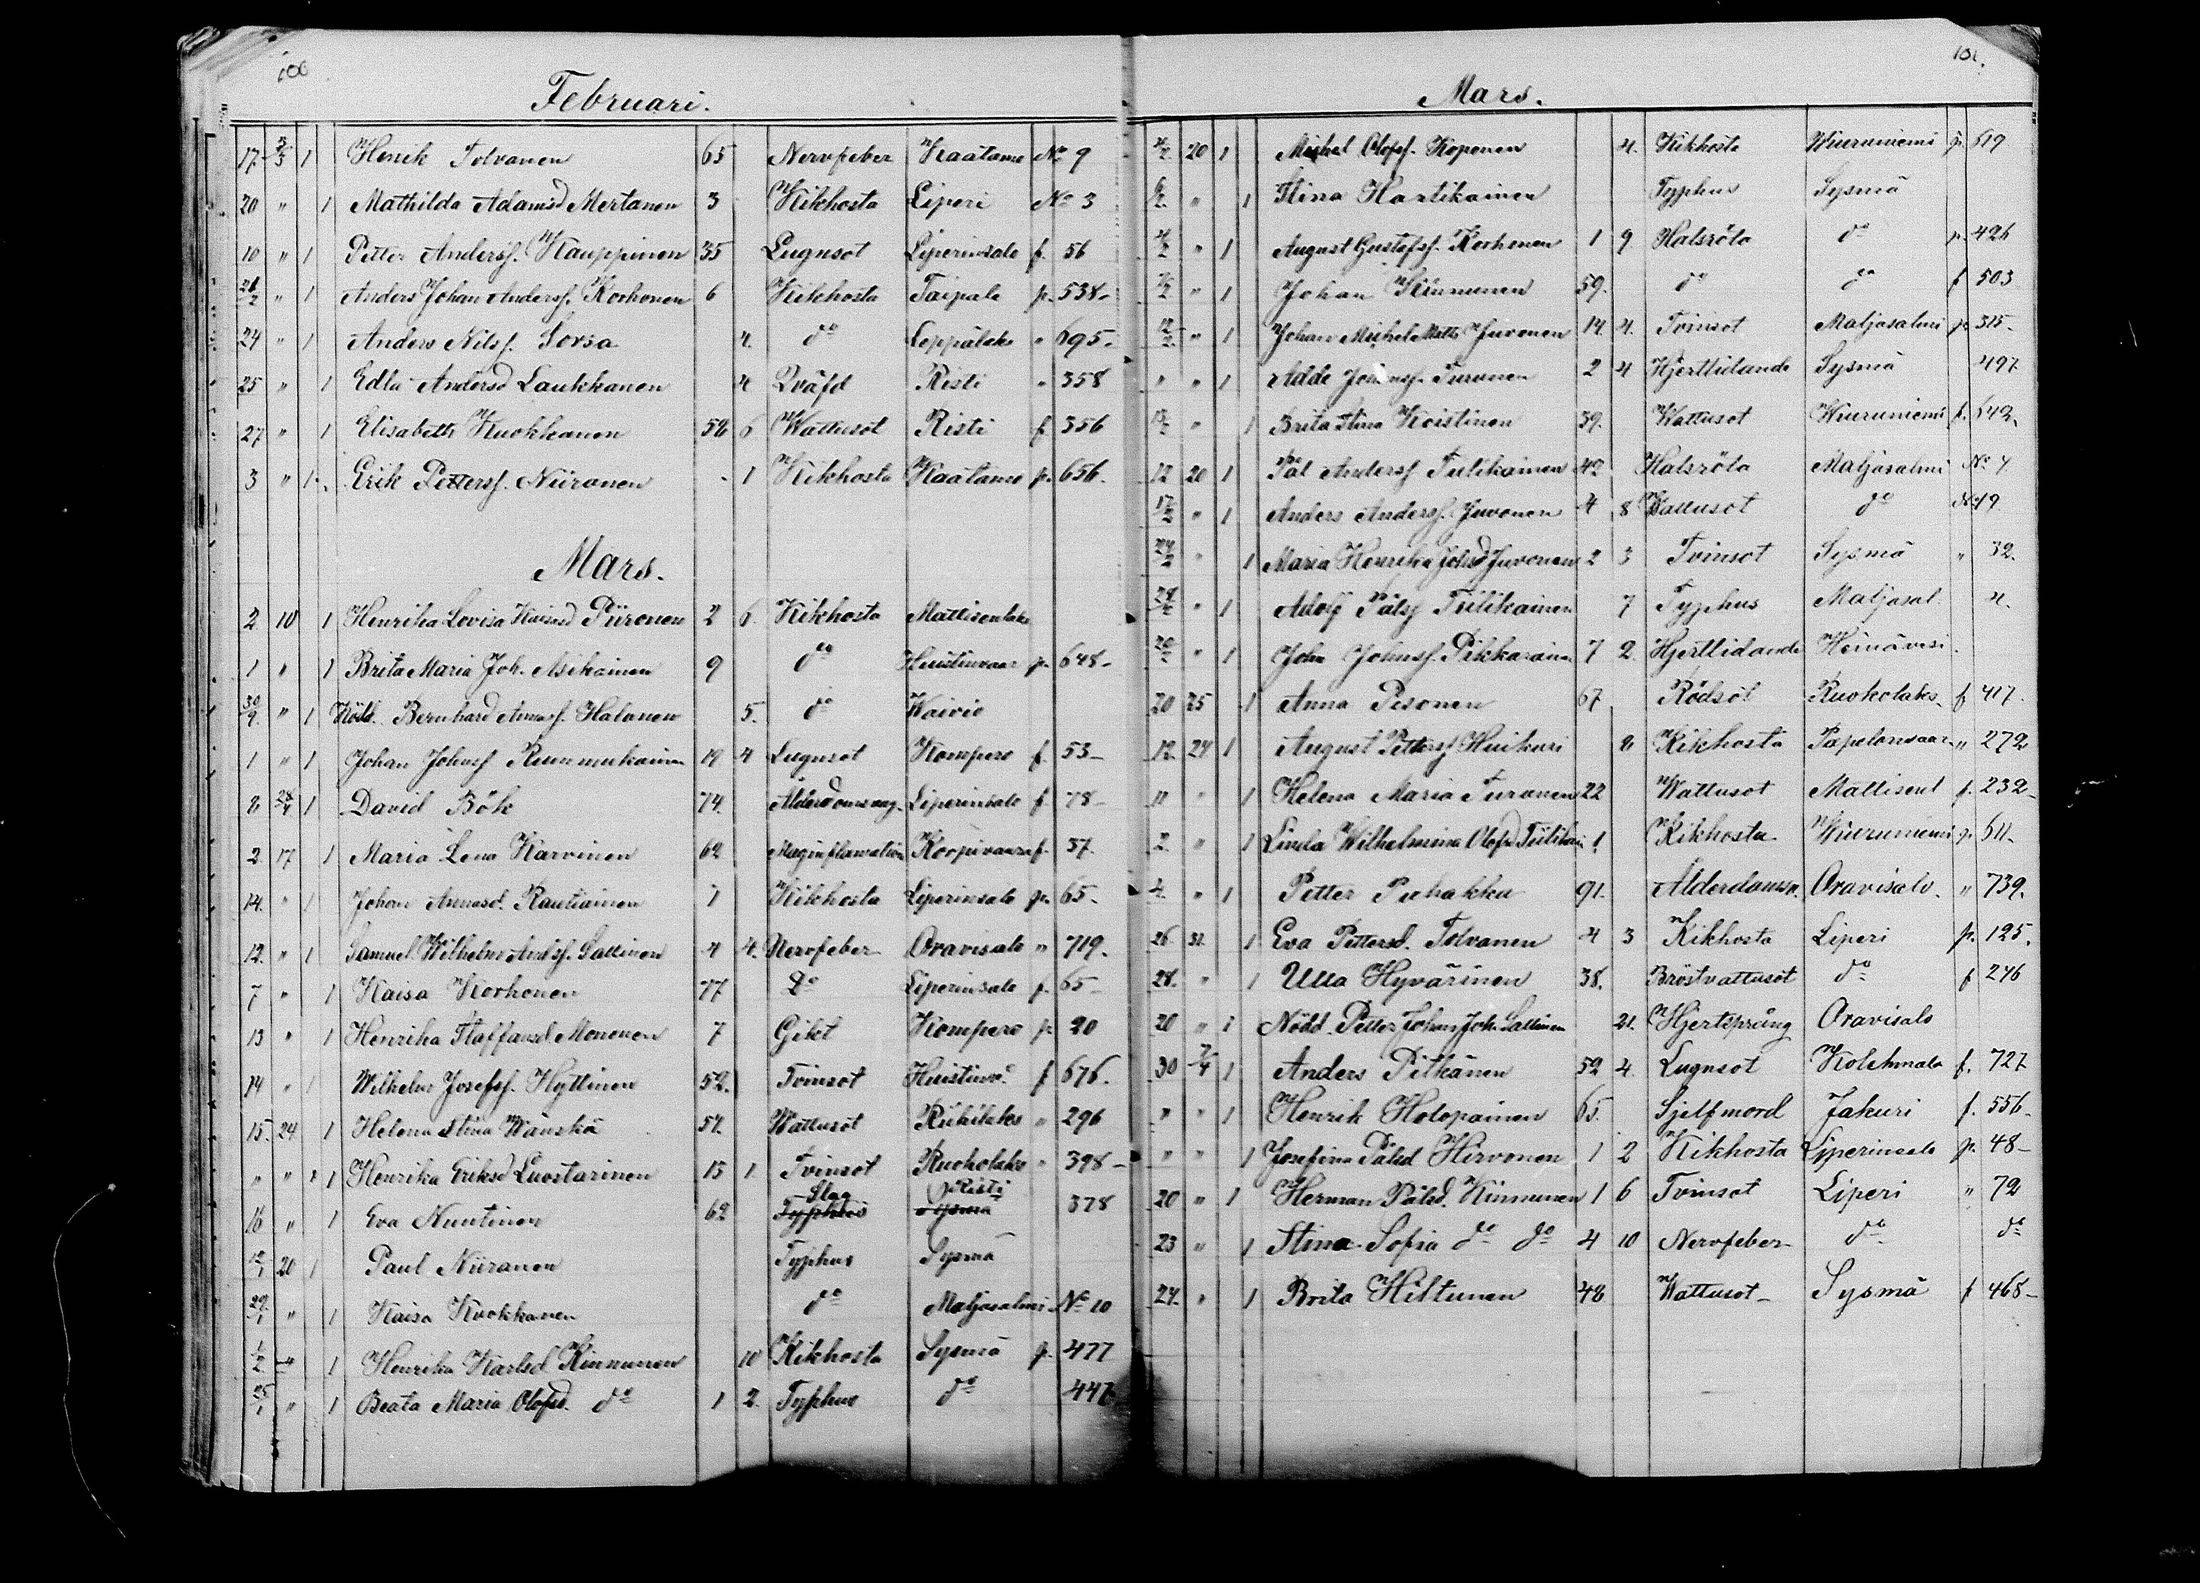 100
Februari.
17 3/3 1 Henrik Tolvanen 65 Nervfeber Kaatamo No 9
20 " 1 Mathilda Adamsd Mertanen 3 Kikhosta Liperi No 3
10 " 1 Petter Andersf. Kauppinen 35 Lugnsot Liperinsalo f. 56
21/2 " 1 Anders Johan Andersf. Korhonen 6 Kikhosta Taipale p. 538
24 " 1 Anders Nilsf. Sorsa 4. do Leppälaks " 695
25 " 1 Edla Andersd Laukkanen 4 Qväfd Risti " 358
27 " 1 Elisabeth Kuokkanen 58 6 Wattusot Risti f 356
3 " 1 Erik Pettersf. Niiranen 1 Kikhosta Kaatamo p. 656
Mars.
2 10 1 Henrika Lovisa Piironen 2 6. Kikhosta Mattisenlaks
1 " 1 Brita Maria Joh. Asikainen 9 do Huistinvaar p. 648
" 1 Bernhard Annasf. Halonen 5. do Waivio
1 " 1 Johan Johnsf Ruummukainen 19 4 Lugnsot Kompero f. 53
6 1 David Bök 74. Ålderdomssvag. Liperinsalo f. 78
2 17 1 Maria Lena Karvinen 62 Maginflamation Korpivaara f. 37.
14. " 1 Johan Annasd. Rautiainen 1 Kikhosta Liperinsalo p. 65.
12. " 1 Samuel Wilhelm Andsf. Sallinen 4 4. Nervfeber Oravisalo " 719.
7 " 1 Kaisa Korhonen 77 Do Liperinsalo f. 65
13 " 1 Henrika Staffansd Mononen 7 Gikt Kompero p 20
14 " 1 Wilhelm Josefsf. Hyttinen 52. Tvinsot Huistinv. f 676.
15. 24 1 Helena Stina Wänskä 54. Wattusot Riihilaks " 296
" " 1 Henrika Eriksd Luostarinen 15 1. Tvinsot Ruokolaks " 398
Slag Risti
16 " 1 Eva Nuutinen 62 Typhus Sysmä 378
12/1 20 1 Paul Niiranen Typhus Sysmä
29/1 " 1 Kaisa Kuokkanen do Maljasalmi No 10
1/2 " 1 Henrika Karlsd Kinnunen 10 Kikhosta Sysmä p. 477
25/1 " 1 Beata Maria Olofsd. do 1 2. Typhus do 447
101.
Mars.
20 1 Michel Olofsf. Koponen 4. Kikhosta Wiuruniemi p. 619
" 1 Stina Hartikainen Typhus Sysmä
" 1 August Gustafsf. Korhonen 1 9 Halsröta do p. 426
" 1 Johan Kinnunen 59. do do f 503
12/2 " 1 Johan Michel Matts Juvonen 14 4. Tvinsot Maljasalmi p. 315
" " 1 Adde Johansf. Turunen 2 4 Hjertlidande Sysmä 497
" 1 Brita Stina Koistinen 39. Wattusot Wiuruniemi f. 642
12 20 1 Pål Andersf Tiilikainen 42 Halsröta Maljasalmi No 4
17/2 " 1 Anders Andersf. Juvonen 4 8 Wattusot do No 19
24/2 " 1 Maria Henrika Johsd Juvonen 2 3 Tvinsot Sysmä " 32.
28/2 " 1 Adolf Pålsf Tiilikainen 7 Typhus Maljasal. 4.
" 1 John Johnsf. Pikkarainen 7 2. Hjertlidande Heinävesi.
20 25 1 Anna Pesonen 67. Rödsot Ruokolaks. f 417.
12. 24 1 August Pettersf Huikuri 8 Kikhosta Papelonvaara " 272
11 " 1 Helena Maria Turanen 22 Wattusot Mattisenl f. 232
2. " 1 Linda Wilhelmina Olofsd Tiilikai 1. Kikhosta Wiuruniemi p. 611.
4. " 1 Petter Puhakka 91. Ålderdomsv. Oravisalo. " 739.
26. 31. 1 Eva Pettersd. Tolvanen 4 3 Kikhosta Liperi p. 125.
28. " 1 Ulla Hyvärinen 38. Bröstvattusot do f 246
20 " 1 Nödd. Petter Johan Joh. Sallinen 21. Hjertsprång Oravisalo
30 7/4 1 Anders Pitkänen 52 4. Lugnsot Kolehmala f. 727
" " 1 Henrik Holopainen 65. Sjelfmord Jakuri f. 556
" " 1 Josefina Pålsd Hirvonen 1 2 Kikhosta Liperinsalo p. 48
20 " 1 Herman Pålsd. Kinnunen 1 6 Tvinsot Liperi " 72
23 " 1 Stina Sofia do do 4 10 Nervfeber do do
24. " 1 Brita Hiltunen 48 Wattusot Sysmä f 468